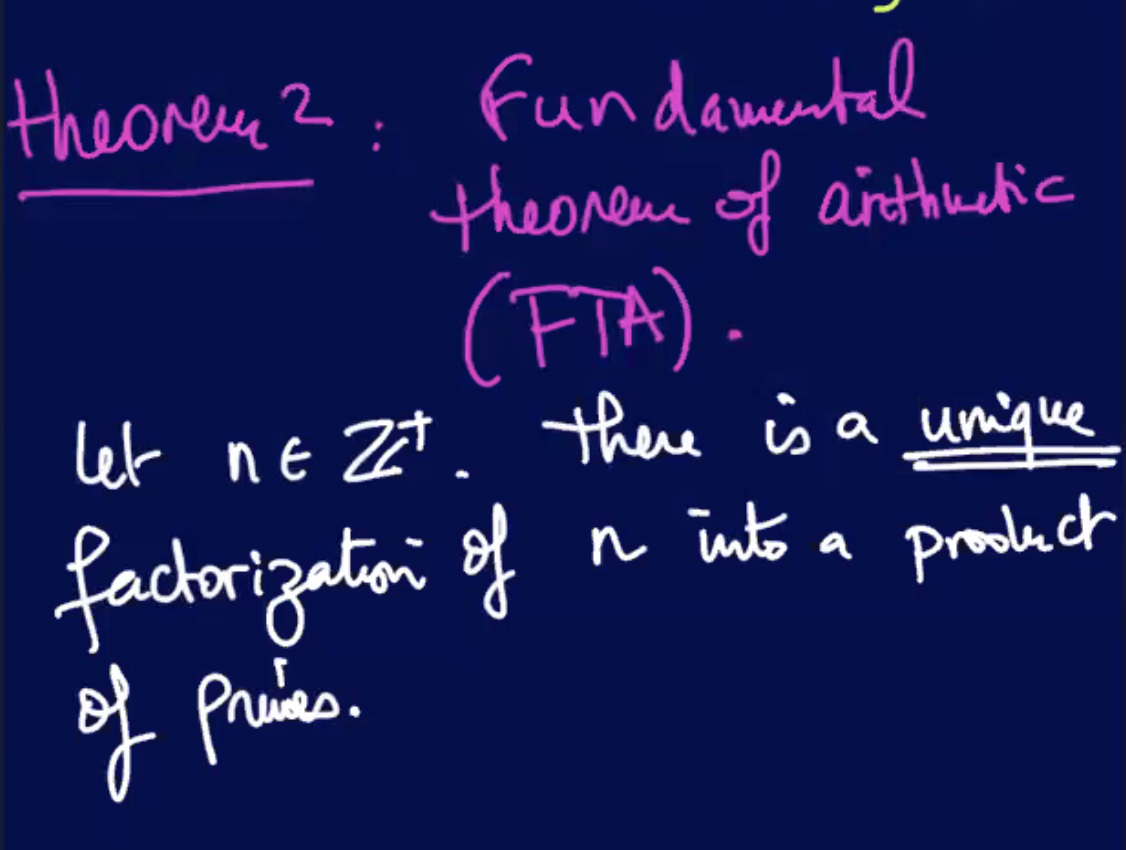 Theorem 2 : Fundamental
theorem of arithmetic
(FTA).
Let n ∈ ℤ⁺. There is a unique
factorization of n into a product
of primes.